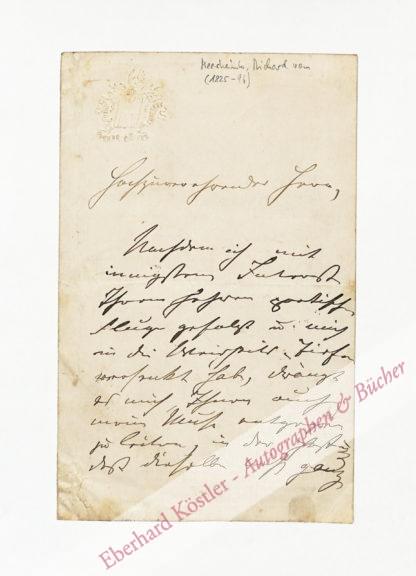 Meerheimb, Richard von
(1825-96)
Hochzuverehrender Herr,
Nachdem ich mit
innigstem Interesse
Ihrem hohen poetischen
Fluge gefolgt u. mich
in die Tiefe
versenkt habe, drängt
es mich Ihnen auch
meine Muse
zu leiten, in der
daß dieselbe ganz
Eberhard Köstler - Autographen & Bücher